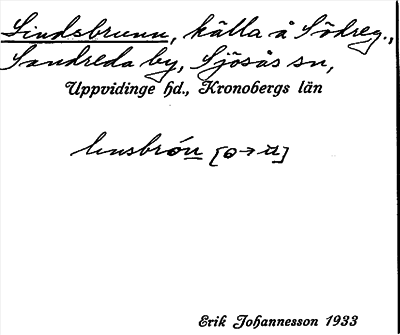 Lindsbrunn, källa å Södreg.,
Sandreda by, Sjösås sn,
Uppvidinge hd., Kronobergs län
Erik Johannesson 1933